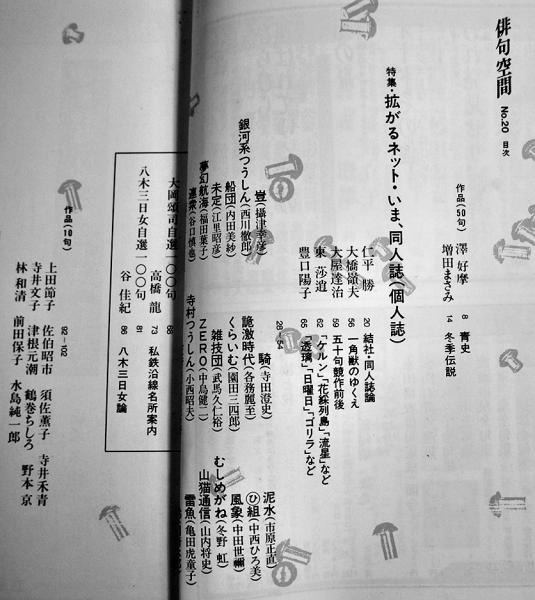 俳句空間 No.20 目次
作品(50句)
澤 好摩 8 青史
増田まさみ 14 冬季伝説
特集・拡がるネット・いま、同人誌(個人誌)
仁平 勝 20 結社・同人誌論
大橋嶺夫 56 一角獣のゆくえ
大屋達治 59 五十句競作前後
東 莎逍 62 「ケルン」「花綵列島」「流星」など
豊口陽子 65 「透璃」「日曜日」「ゴリラ」など
豈(攝津幸彦)
銀河系つうしん(西川徹郎)
船団(内田美紗)
未定(江里昭彦)
夢幻航海(福田葉子)
連衆(谷口慎也)
騎(寺田澄史)
詭激時代(各務麗至)
くらいむ(園田三四郎)
雑技団(武馬久仁裕)
ZERO(中島健二)
寺村つうしん(小西昭夫)
泥水(市原正直)
㋪組(中西ひろ美)
風象(中田世禰)
むしめがね(冬野 虹)
山猫通信(山内将史)
雷魚(亀田虎童子)
大岡頌司自選一〇〇句 68
高橋 龍 73 私鉄沿線名所案内
八木三日女自選一〇〇句 81
谷 佳紀 86 八木三日女論
作品(10句)
92-102
上田節子 佐伯昭市 須佐薫子 寺井禾青
寺井文子 津根元潮 鶴巻ちしろ 野本 京
林 和清 前田保子 水島純一郎